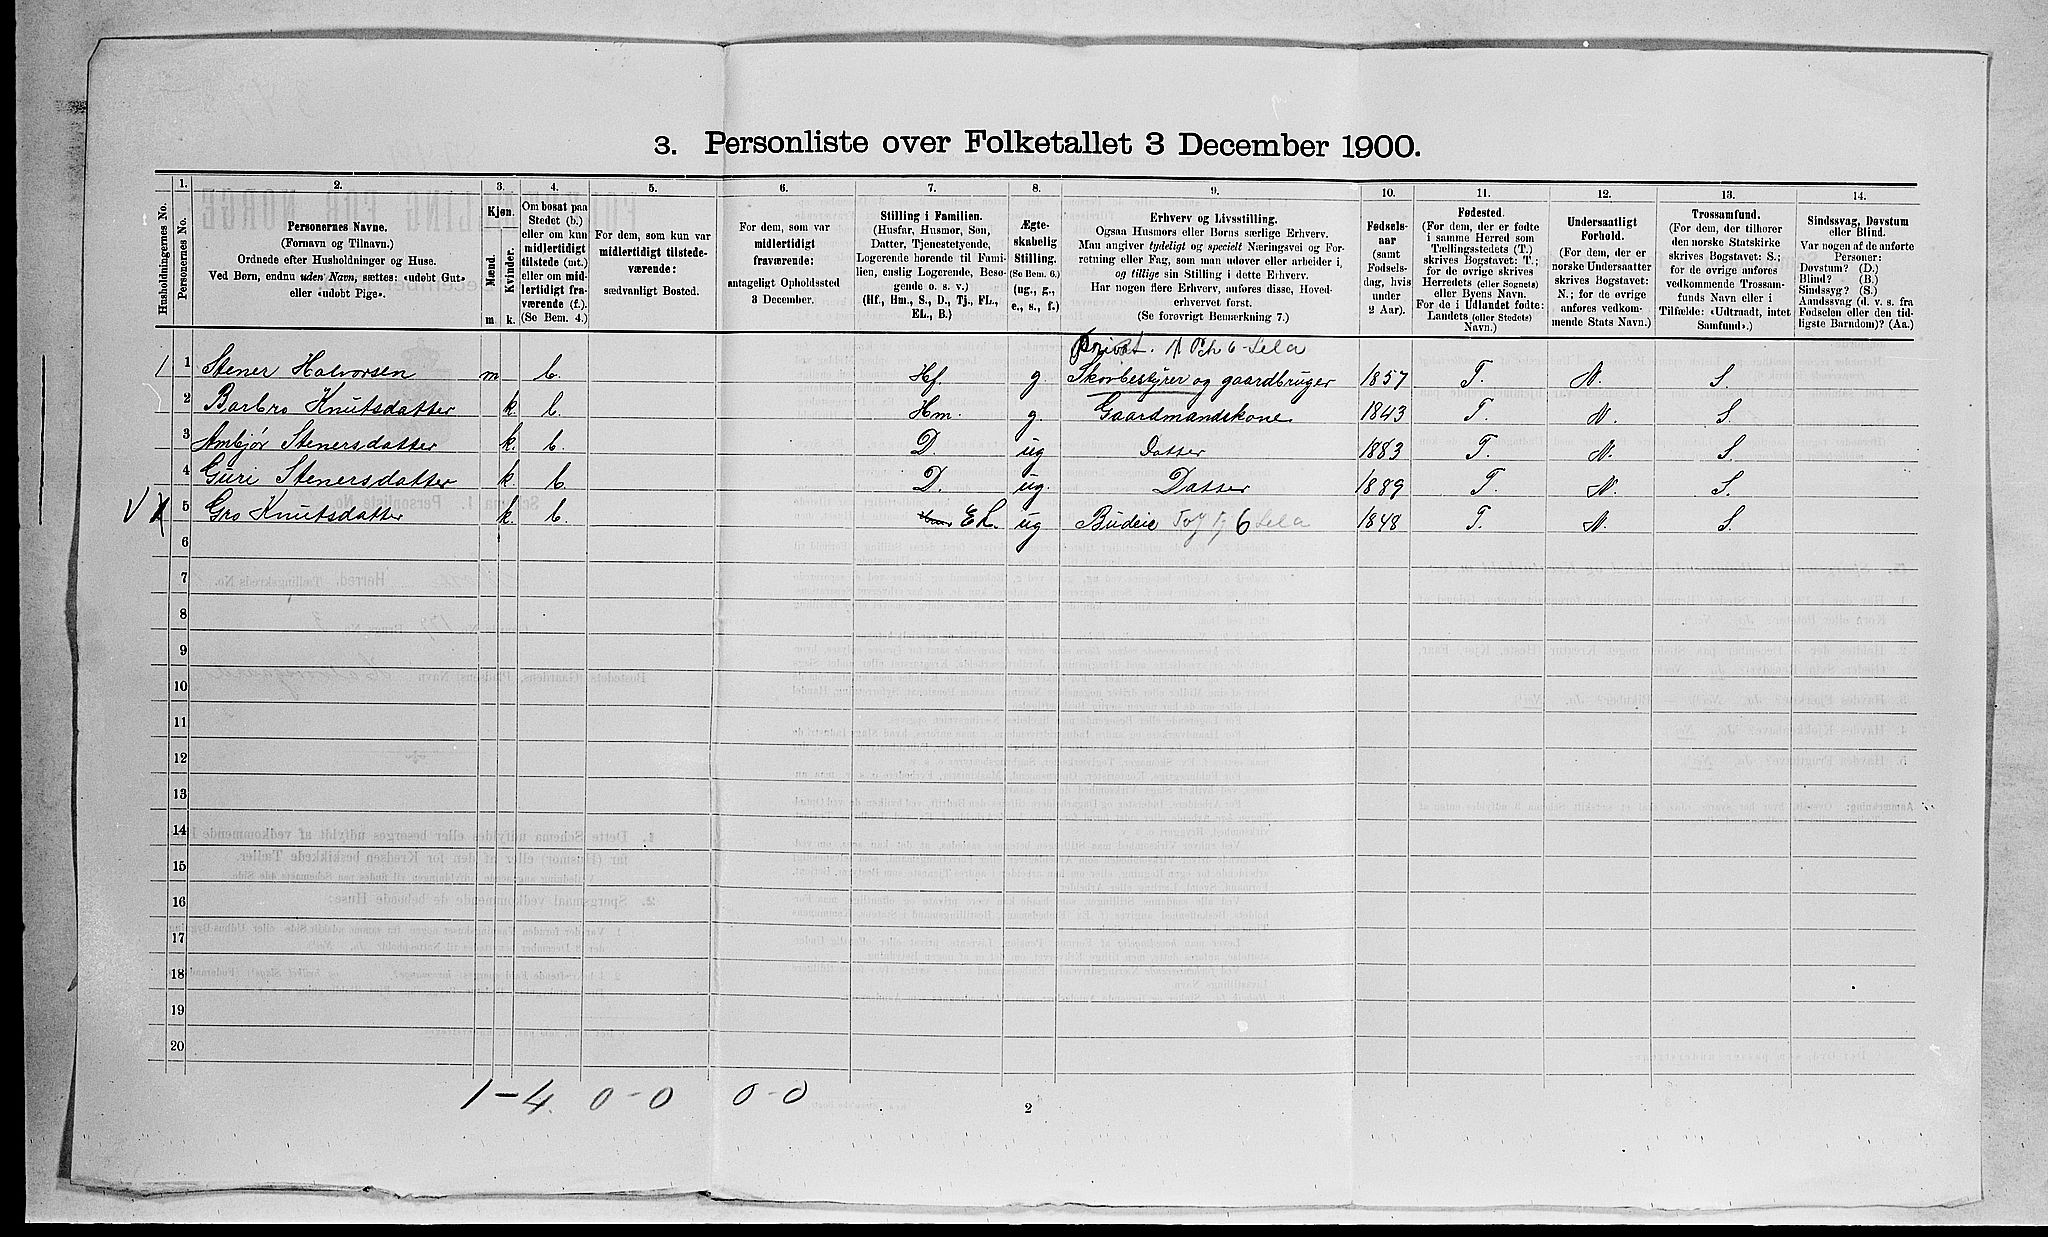 3. Personliste over Folketallet 3 December 1900.
Husholdningernes No.
1.
Personernes No.
2.
Personernes Navne.
(Fornavn og Tilnavn.)
Ordnede efter Husholdninger og Huse.
Ved Børn, endnu uden Navn, sættes: «udøbt Gut»
eller «udøbt Pige».
3.
Kjøn.
Mænd.
Kvinder.
m k.
4.
Om bosat paa
Stedet (b.)
eller om kun
midlertidigt
tilstede (mt.)
eller om mid-
lertidigt fra-
værende (f.).
(Se Bem. 4.)
5.
For dem, som kun var
midlertidigt tilstede-
værende:
sædvanligt Bosted.
6.
For dem, som var
midlertidigt
fraværende:
antageligt Opholdssted
3 December.
7.
Stilling i Familien.
(Husfar, Husmor, Søn,
Datter, Tjenestetyende,
Logerende hørende til Fami-
lien, enslig Logerende, Besø-
gende o. s. v.)
(Hf., Hm., S., D., Tj., FL.,
EL., B.)
8.
Ægte-
skabelig
Stilling.
(Se Bem. 6.)
(ug., g.,
e., s., f.)
9.
Erhverv og Livsstilling.
Ogsaa Husmors eller Børns særlige Erhverv.
Man angiver tydeligt og specielt Næringsvei og For-
retning eller Fag, som man udøver eller arbeider i,
og tillige sin Stilling i dette Erhverv.
Har nogen flere Erhverv, anføres disse, Hoved-
erhvervet først.
(Se forøvrigt Bemærkning 7.)
10.
Fødsels-
aar
(samt
Fødsels-
dag, hvis
under
2 Aar).
11.
Fødested.
(For dem, der er fødte
i samme Herred som
Tællingsstedets (T.)
skrives Bogstavet: T.;
for de øvrige skrives
Herredets (eller Sognets)
eller Byens Navn.
For de i Udlandet fødte:
Landets (eller Stedets)
Navn.)
12.
Undersaatligt
Forhold.
(For dem, der er
norske Undersaatter
skrives Bogstavet:
N.; for de øvrige
anføres vedkom-
mende Stats Navn.)
13.
Trossamfund.
(For dem, der tilhører
den norske Statskirke
skrives Bogstavet: S.;
for de øvrige anføres
vedkommende Trossam-
funds Navn eller i
Tilfælde: «Udtraadt, intet
Samfund».)
14.
Sindssvag, Døvstum
eller Blind.
Var nogen af de anførte
Personer:
Døvstum? (D.)
Blind? (B.)
Sindssyg? (S.)
Aandssvag (d. v. s. fra
Fødselen eller den tid-
ligste Barndom)? (Aa.)
Privat.
1 1 Stener Halvorsen m b. Hf. g. Skovbestyrer og gaardbruger 1857 T. N. S.
2 Barbro Knutsdatter k. b. Hm. g. Gaardmandskone 1843 T. N. S.
3 Ambjør Stenersdatter k. b. D. ug Datter 1883 T. N. S.
4 Guri Stenersdatter k b. D. ug. Datter 1889 T. N. S.
5 Gro Knutsdatter k. b. EL. ug Budeie 1848 T. N. S.
6
7
8
9
10
11
12
13
14
15
16
17
18
19
20
1-4. 0-0 0-0
2